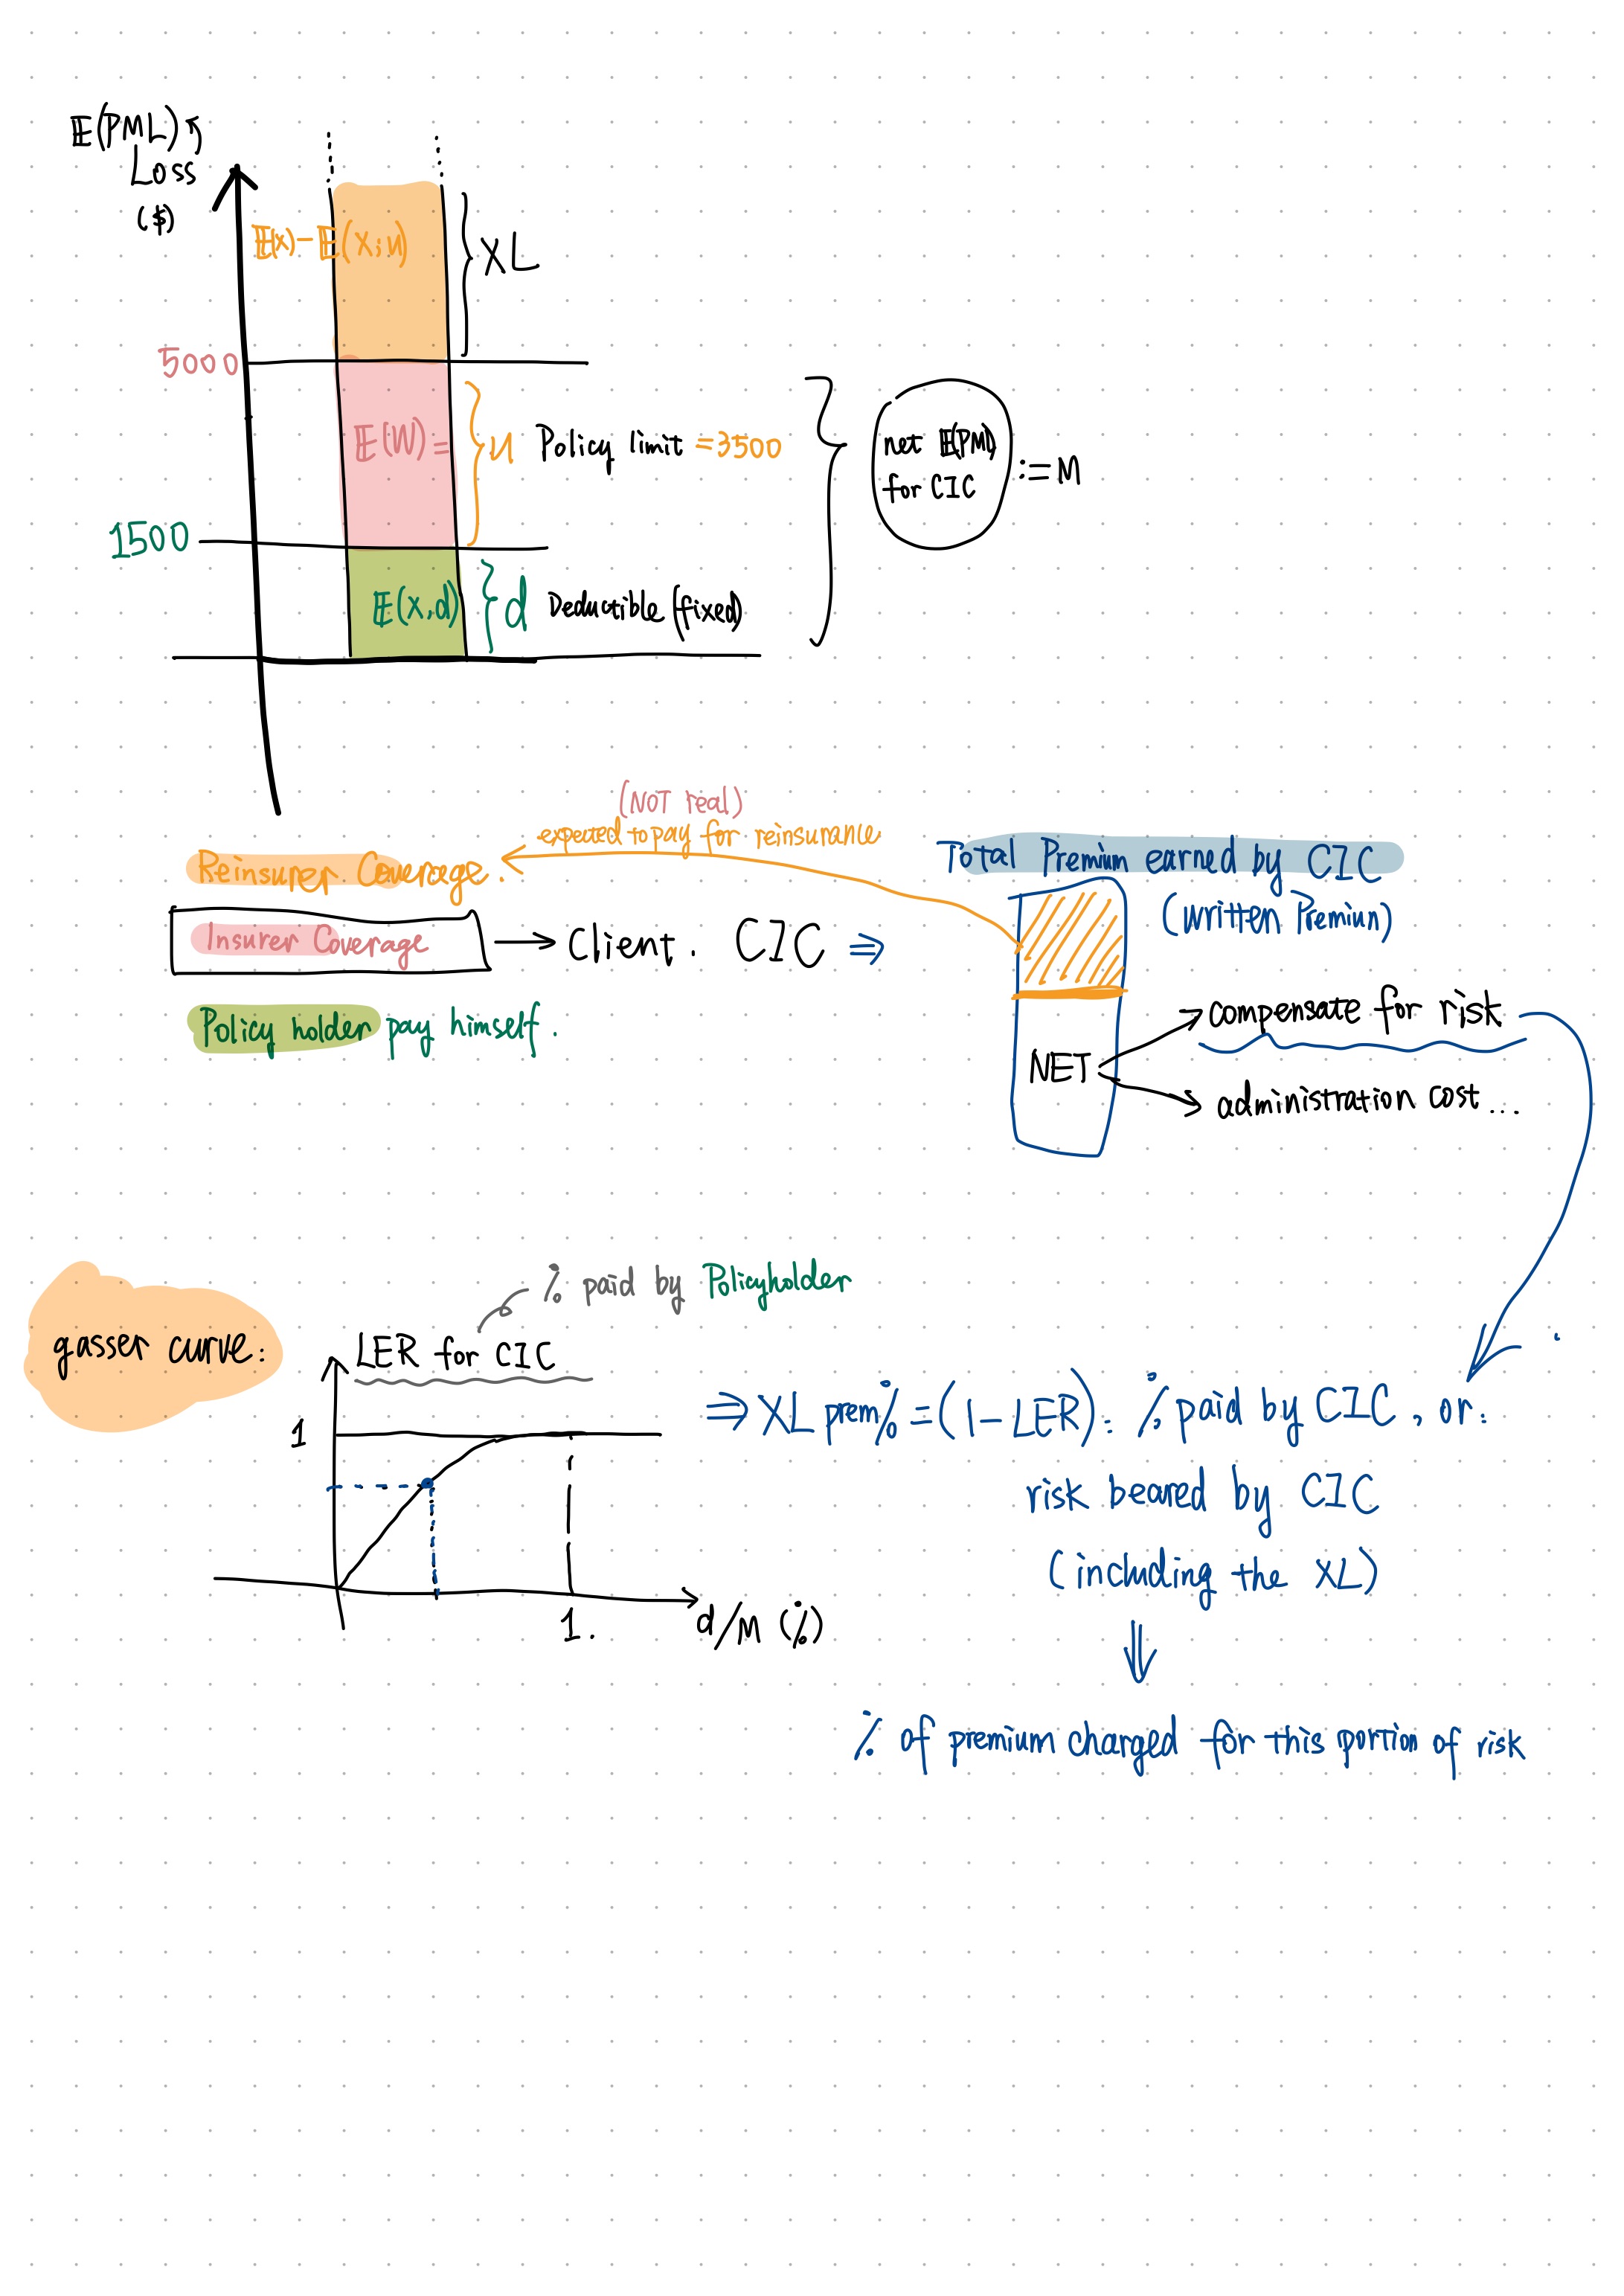 𝔼(PML)
Loss
($)
𝔼(x)-𝔼(X;u)
XL
5000
𝔼(W)=
u Policy limit =3500
net 𝔼(PML)
for CIC
:=M
1500
𝔼(x,d)
d Deductible (fixed)
(NOT real)
expected to pay for reinsurance
Reinsurer Coverage.
Total Premium earned by CIC
(written Premiun)
Insurer Coverage → Client. CIC ⇒
Policy holder pay himself.
NET
compensate for risk
administration cost ...
gasser curve:
% paid by Policyholder
LER for CIC
1
1.
d/M (%)
⇒ XL prem% = (1-LER): % paid by CIC, or:
risk beared by CIC
(including the XL)
⇓
% of premium charged for this portion of risk